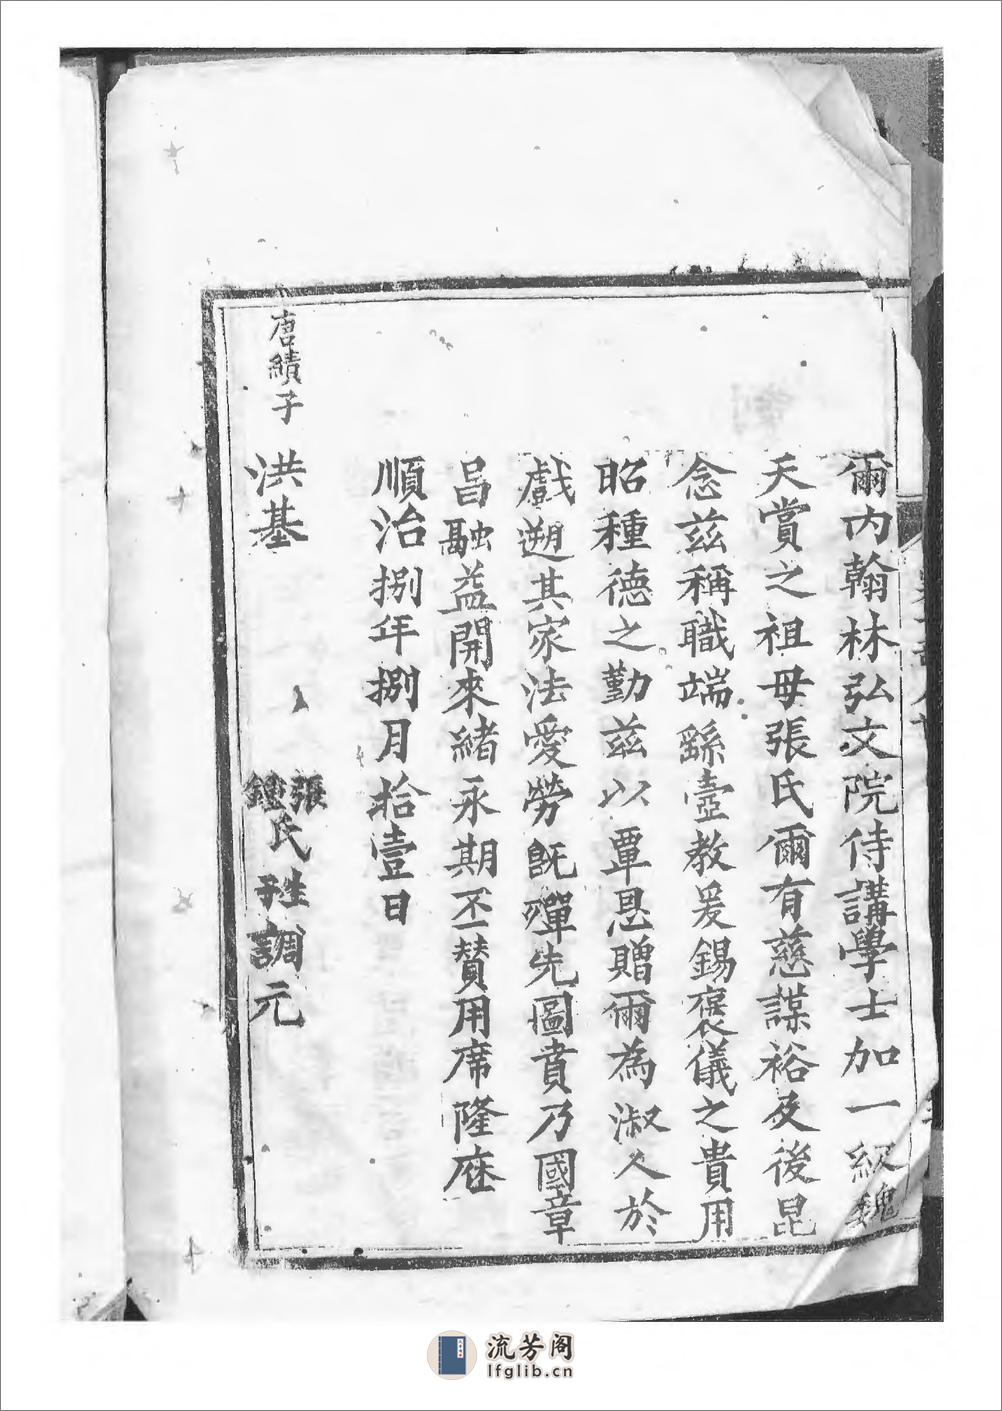 爾內翰林弘文院侍講學士加一級魏
天賞之祖母張氏爾有慈謀裕及後昆
念茲稱職端繇壼教爰錫褒儀之貴用
昭種德之勤茲以覃恩贈爾為淑人於
戲遡其家法愛勞既殫先圖賁乃國章
昌融益開來緒永期丕贊用席隆庥
順治捌年捌月拾壹日
唐績子 洪基
張鍾氏 生子調元
流芳阁
lfglib.cn